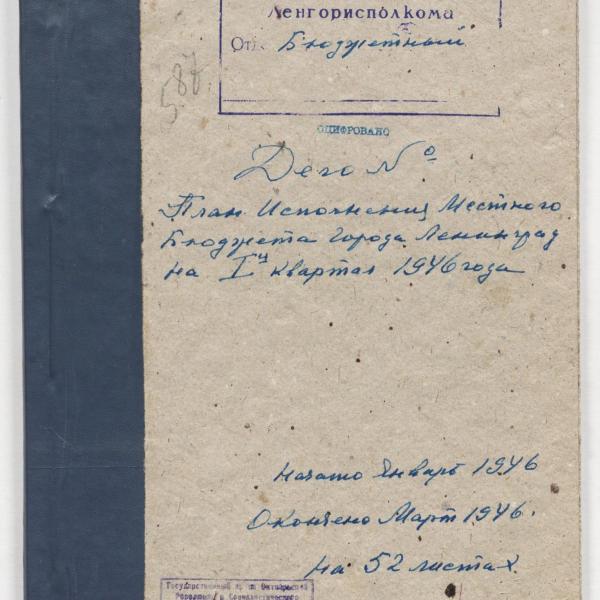 Ленгорисполкома
От. Бюджетный
587.
ОЦИФРОВАНО
Дело №
План Исполнения Местного
Бюджета Города Ленинград
на Iй квартал 1946 года
Начато Январь 1946
Окончено Март 1946.
на 52 листах.
Государственный Октябрьской
Революции и Социалистического